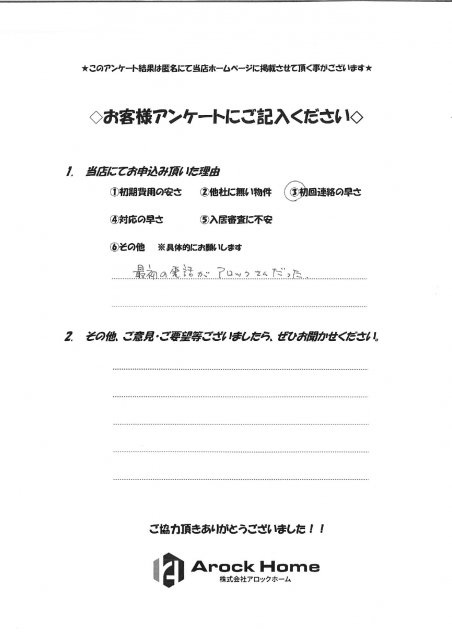 ★このアンケート結果は匿名にて当店ホームページに掲載させて頂く事がございます★
◇お客様アンケートにご記入ください◇
1. 当店にてお申込み頂いた理由
①初期費用の安さ ②他社に無い物件 ③初回連絡の早さ
④対応の早さ ⑤入居審査に不安
⑥その他 ※具体的にお願いします
最初の電話がアロックさんだった。
2. その他、ご意見・ご要望等ございましたら、ぜひお聞かせください。
ご協力頂きありがとうございました！！
Arock Home
株式会社アロックホーム